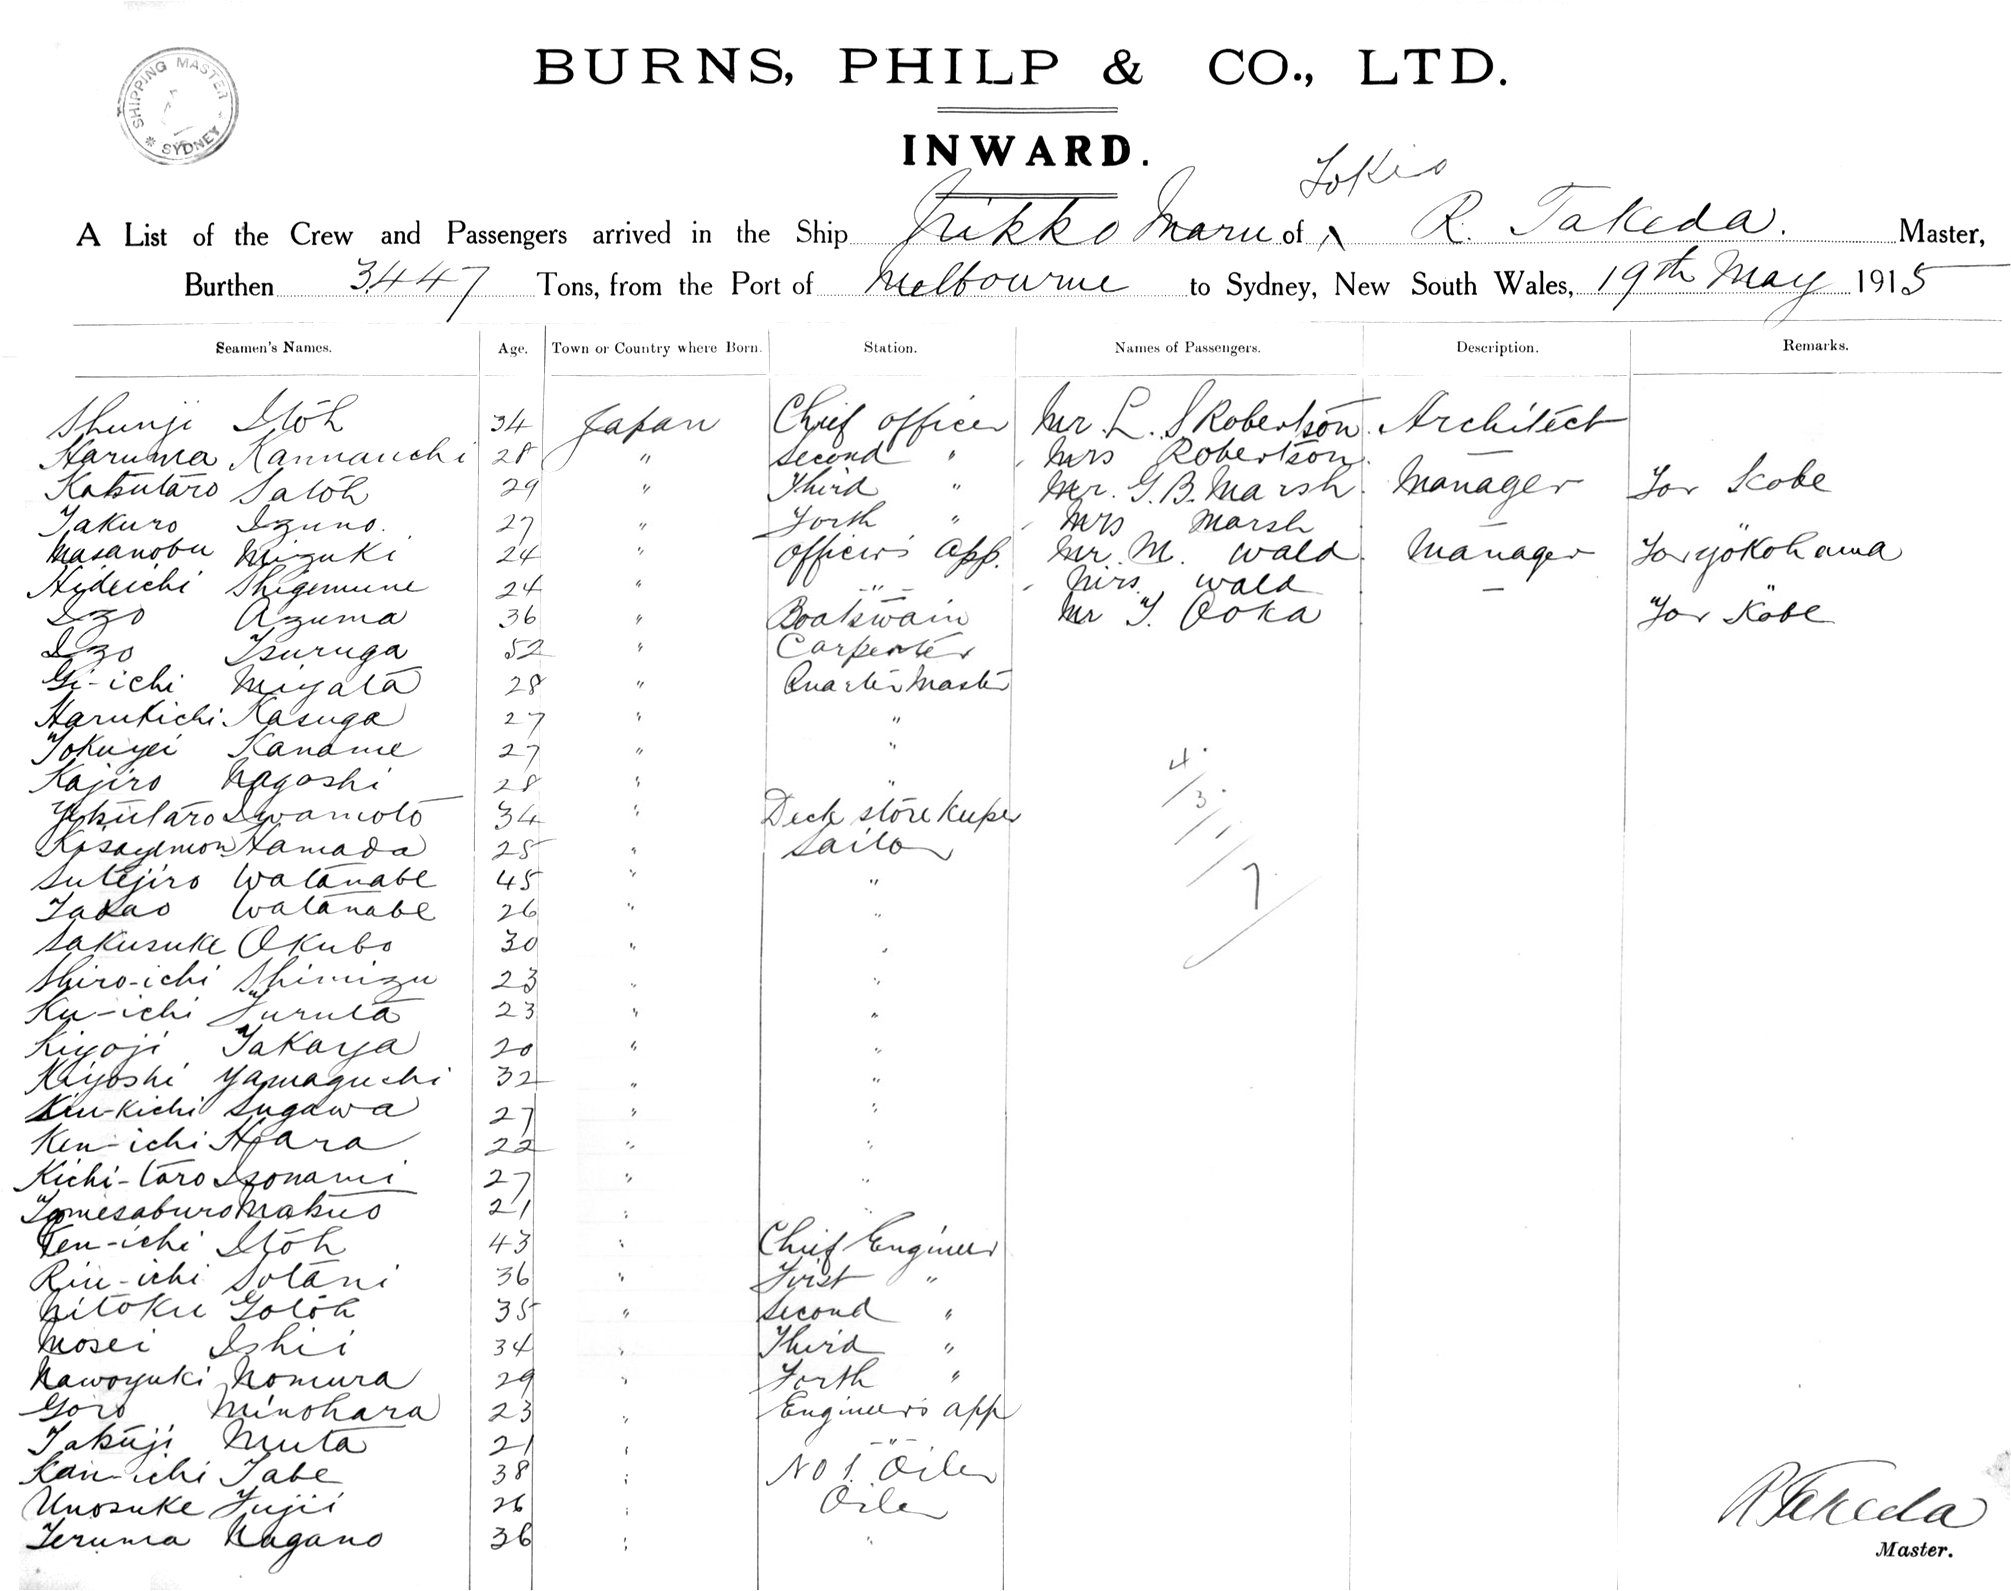 SHIPPING MASTER * SYDNEY *
BURNS, PHILP & CO., LTD.
INWARD.
Tokio
A List of the Crew and Passengers arrived in the Ship Nikko Maru of ^ R. Takeda. Master,
Burthen 3447 Tons, from the Port of Melbourne to Sydney, New South Wales, 19th May 1915
Seamen's Names. Age. Town or Country where Born. Station. Names of Passengers. Description. Remarks.
Shunji Itoh 34 Japan Chief officer Mr. L. S Robertson. Architect
Haruma Kannauchi 28 " Second " Mrs Robertson. —
Katsutaro Satoh 29 " Third " Mr. G. B. Marsh. Manager For Kobe
Takuro Izuno. 27 " Forth " Mrs Marsh — "
Masanobu Mizuki 24 " Officer's app. Mr. M. Wald. Manager For Yokohama
Hideichi Shigemune 24 " -"- Mrs. Wald — "
Izo Azuma 36 " Boatswain Mr T. Ooka For Kobe
Izo Tsuruga 52 " Carpenter
Gi-ichi Miyata 28 " Quarter Master
Harukichi Kasuga 27 " "
Tokuyei Kaname 27 " "
Kajiro Nagoshi 28 " "
Iwamoto 34 " Deck storekeeper
Hamada 25 " Sailor
Sutejiro Watanabe 45 " "
Takao Watanabe 26 " "
Sakusuke Okubo 30 " "
Shiro-ichi Shimizu 23 " "
Ku-ichi Furuta 23 " "
Kiyoji Takaya 20 " "
Kiyoshi Yamaguchi 32 " "
Kiu-kichi Sugawa 27 " "
Ken-ichi Hara 22 " "
Kichi-taro Isonami 27 " "
Tomesaburo Matsuo 21 " "
Ten-ichi Itoh 43 " Chief Engineer
Riu-ichi Sotani 36 " First "
Nitoku Gotoh 35 " Second "
Mosei Ishii 34 " Third "
Nawoyuki Nomura 29 " Forth "
Goro Minohara 23 " Engineer's app
Takuji Muta 21 " -"-
Kan-ichi Tabe 38 " No 1. Oiler
Unosuke Fujii 26 " Oiler
Teruma Nagano 36 " "
4
/ 3
/ / 1
/ 7
R Takeda
Master.